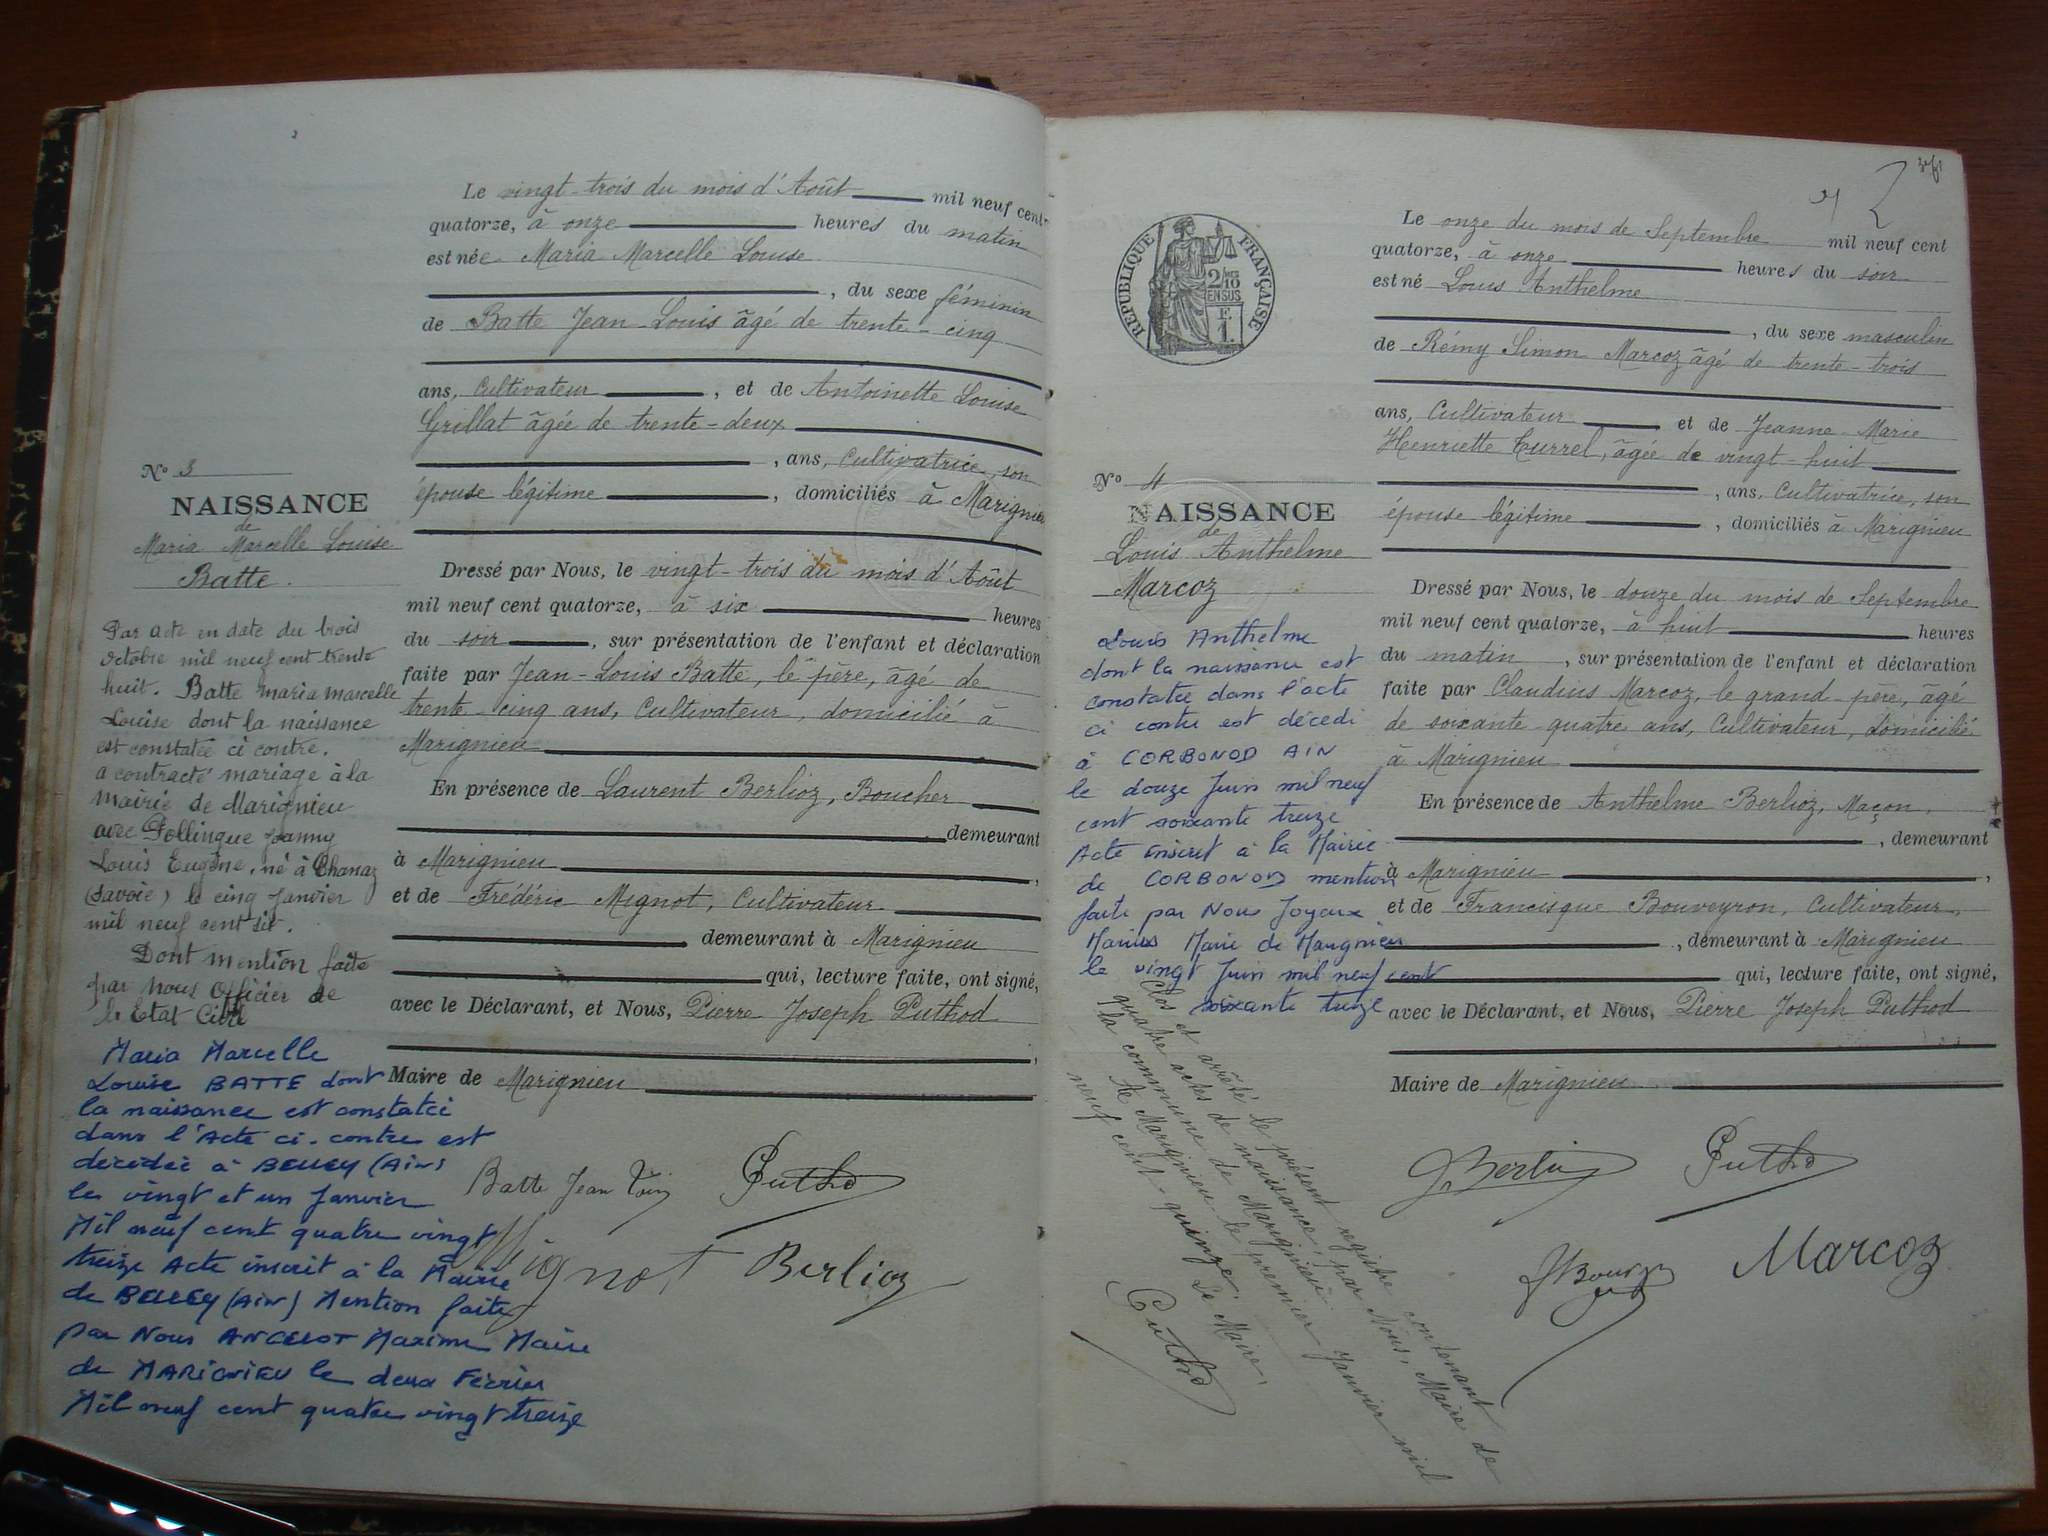 Le vingt-trois du mois d'Août mil neuf cent
quatorze, à onze heures du matin
est née Maria Marcelle Louise
, du sexe féminin
de Batte Jean-Louis âgé de trente-cinq
ans, Cultivateur , et de Antoinette Louise
Grillat âgée de trente-deux
, ans, Cultivatrice, son
épouse légitime , domiciliés à Marignieu
N° 3
NAISSANCE
de
Maria Marcelle Louise
Batte.
Dressé par Nous, le vingt-trois du mois d'Août
mil neuf cent quatorze, à six heures
du soir , sur présentation de l'enfant et déclaration
faite par Jean-Louis Batte, le père, âgé de
trente-cinq ans, Cultivateur, domicilié à
Marignieu
En présence de Laurent Berlioz, Boucher
demeurant
à Marignieu ,
et de Frédéric Mignot, Cultivateur
demeurant à Marignieu
qui, lecture faite, ont signé,
avec le Déclarant, et Nous, Pierre Joseph Puthod
,
Maire de Marignieu
Batte Jean Louis Puthod
Mignot Berlioz
Par acte en date du trois
octobre mil neuf cent trente
huit. Batte Maria Marcelle
Louise dont la naissance
est constatée ci contre.
a contracté mariage à la
mairie de Marignieu
avec Pollingue Joanny
Louis Eugène, né à Chanaz
(Savoie) le cinq janvier
mil neuf cent six.
Dont mention faite
par nous Officier de
le Etat Civil
Maria Marcelle
Louise BATTE dont
la naissance est constatée
dans l'Acte ci-contre est
décédée à BELLEY (Ain)
le vingt et un Janvier
Mil neuf cent quatre vingt
treize Acte inscrit à la Mairie
de BELLEY (Ain) Mention faite
par Nous ANCELOT Maxime Maire
de MARIGNIEU le deux Février
Mil neuf cent quatre vingt treize
REPUBLIQUE FRANÇAISE
2/10
EN SUS
F.
1.
Le onze du mois de Septembre mil neuf cent
quatorze, à onze heures du soir
est né Louis Anthelme
, du sexe masculin
de Rémy Simon Marcoz âgé de trente-trois
ans, Cultivateur et de Jeanne Marie
Henriette Currel, âgée de vingt-huit
, ans, Cultivatrice, son
épouse légitime , domiciliés à Marignieu
N° 4
NAISSANCE
de
Louis Anthelme
Marcoz
Dressé par Nous, le douze du mois de Septembre
mil neuf cent quatorze, à huit heures
du matin , sur présentation de l'enfant et déclaration
faite par Claudius Marcoz, le grand-père, âgé
de soixante-quatre ans, Cultivateur, domicilié
à Marignieu
En présence de Anthelme Berlioz, Maçon,
, demeurant
à Marignieu ,
et de Francisque Bouveyron, Cultivateur,
, demeurant à Marignieu
qui, lecture faite, ont signé,
avec le Déclarant, et Nous, Pierre Joseph Puthod
Maire de Marignieu
Puthod
Marcoz
Louis Anthelme
dont la naissance est
constatée dans l'acte
ci contre est décédé
à CORBONOD AIN
le douze Juin mil neuf
cent soixante treize
Acte inscrit à la Mairie
de CORBONOD mention
faite par Nous Joyeux
Marius Maire de Marignieu
le vingt Juin mil neuf cent
soixante treize
Clos et arrêté le présent registre contenant
quatre actes de naissance, par Nous, Maire de
la commune de Marignieu.
A Marignieu le premier Janvier mil
neuf cent-quinze. Le Maire,
Puthod